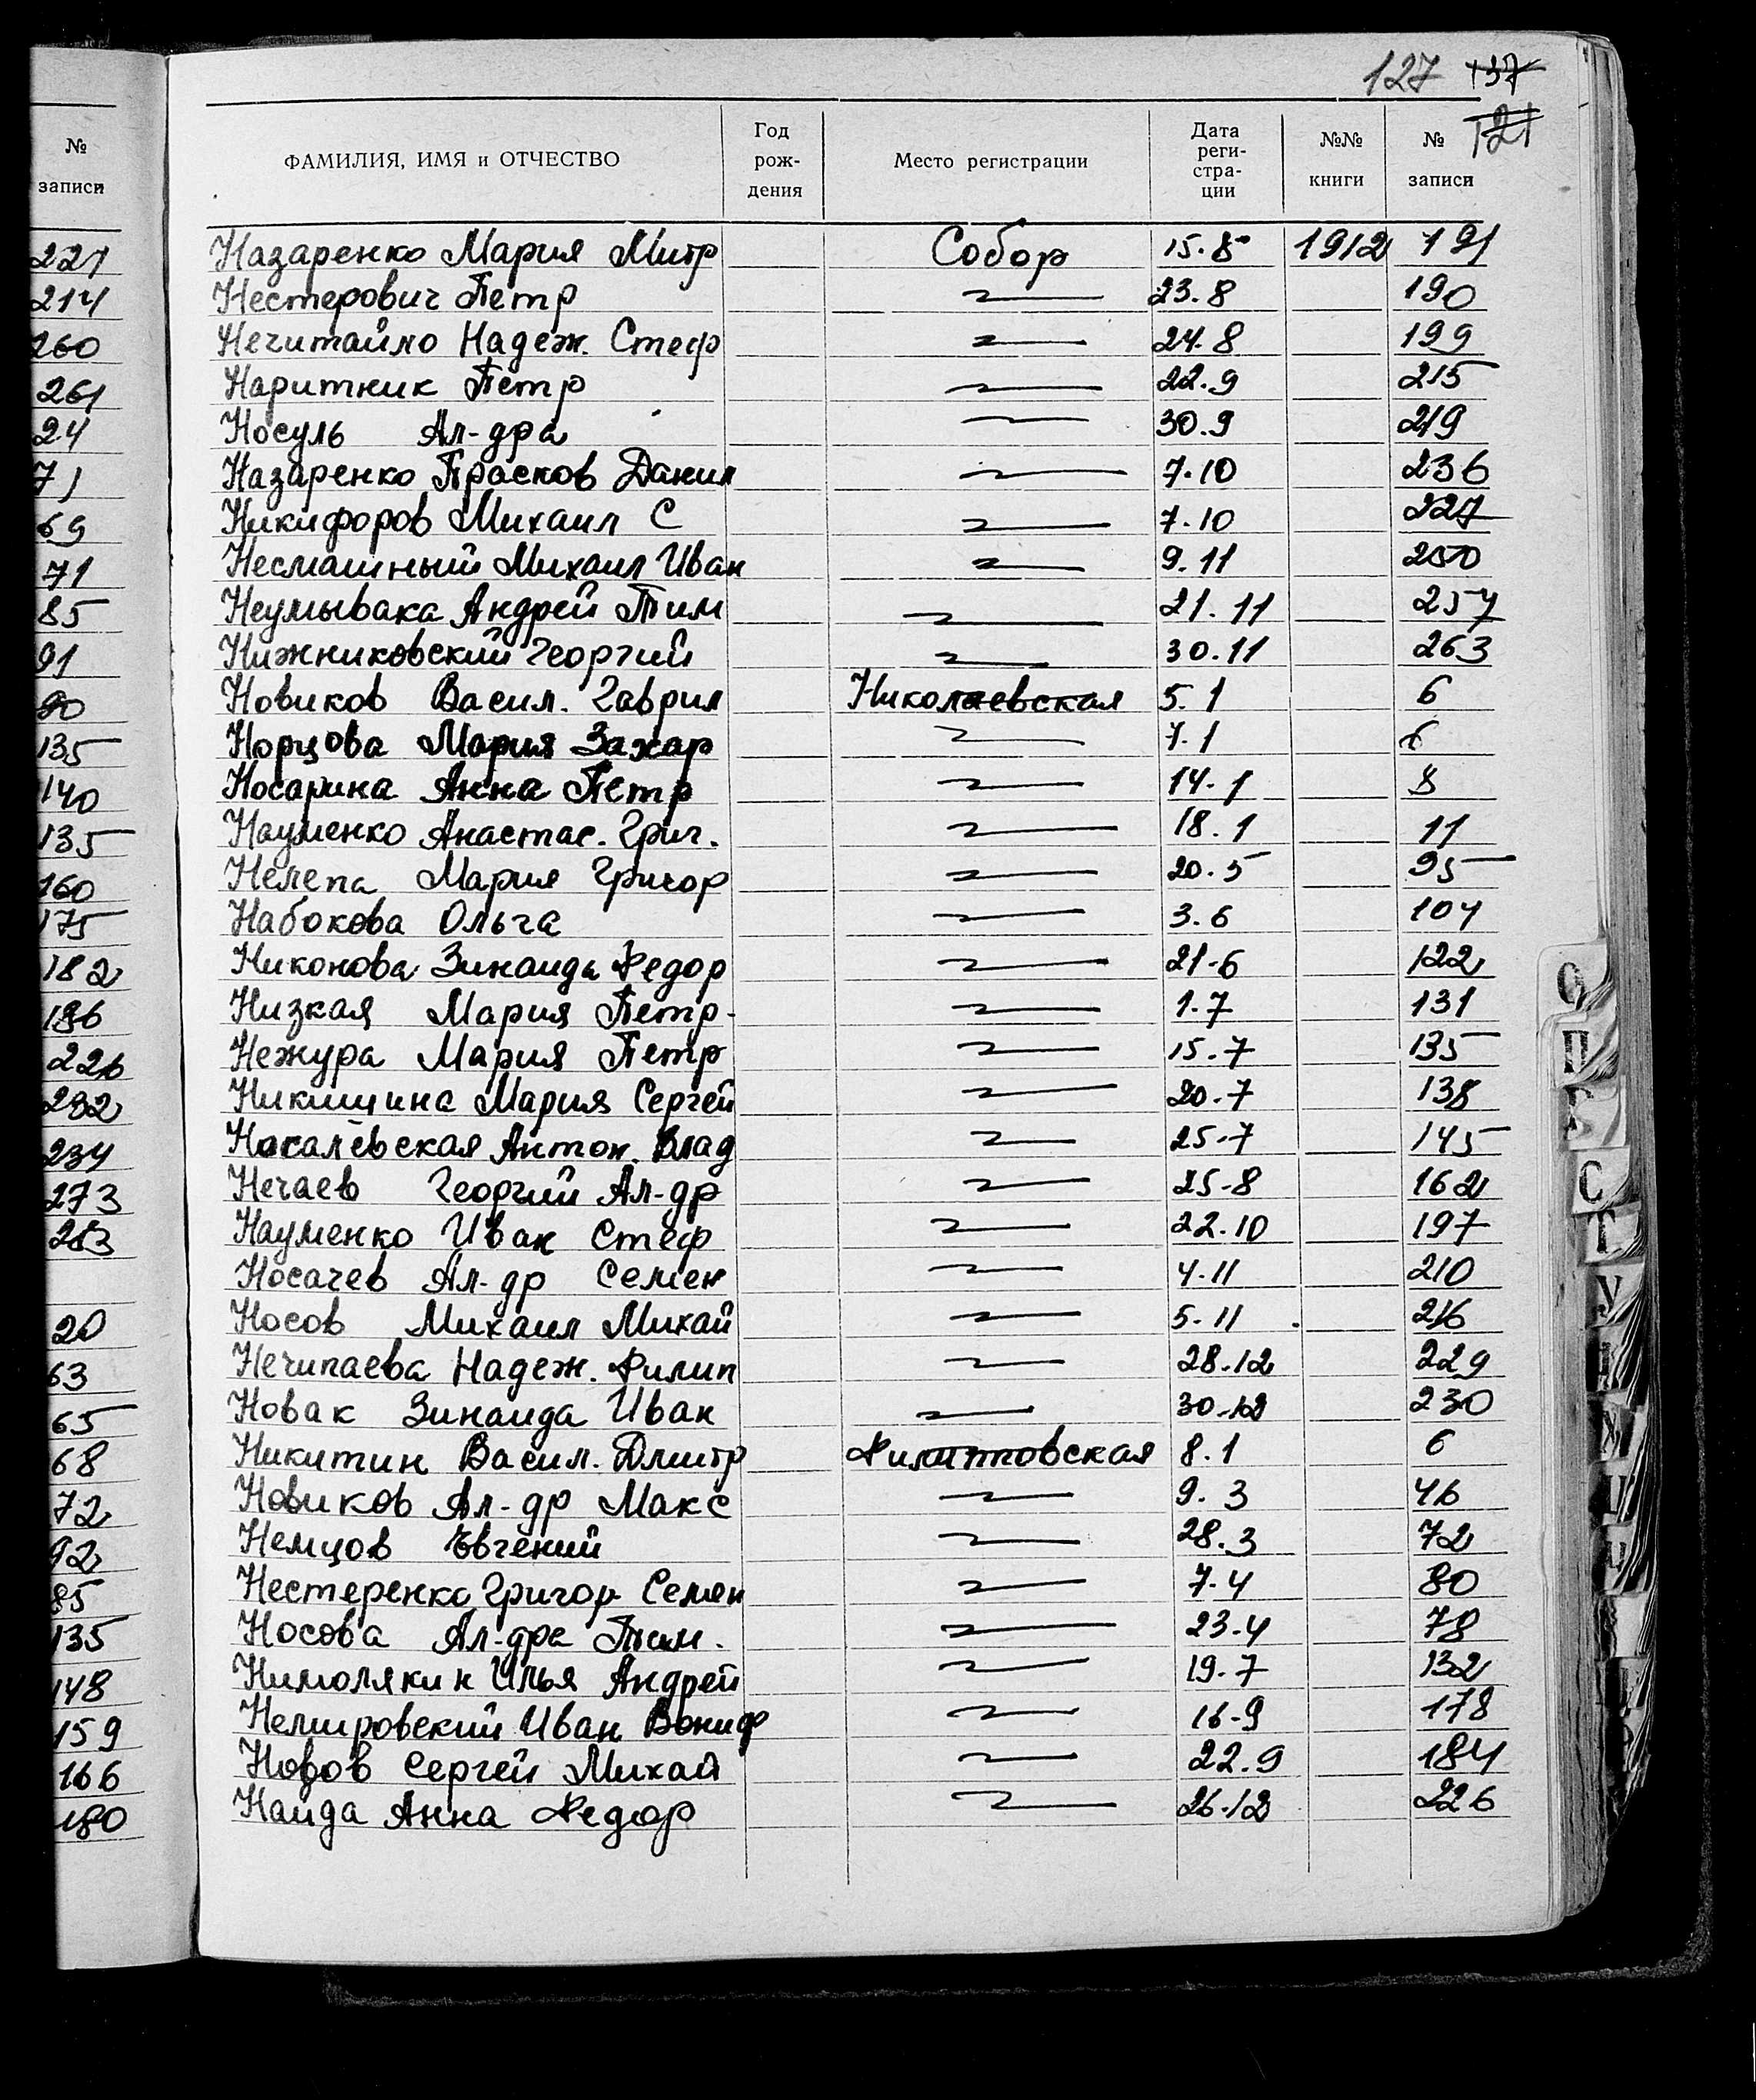 127 137
121
ФАМИЛИЯ, ИМЯ и ОТЧЕСТВО Год рож- дения Место регистрации Дата реги- стра- ции №№ книги № записи
Назаренко Мария Митр Собор 15.8 1912 191
Нестерович Петр 23.8 190
Нечитайло Надеж. Стеф 24.8 199
Наритник Петр 22.9 215
Носуль Ал-дра 30.9 219
Назаренко Прасков Данил 7.10 236
Никифоров Михаил С 7.10 227
Несмашный Михаил Иван 9.11 250
Неумывака Андрей Тим 21.11 257
Нижниковский Георгий 30.11 263
Новиков Васил. Гаврил Николаевская 5.1 6
Норцова Мария Захар 7.1 6
Носарина Анна Петр 14.1 8
Науменко Анастас. Григ. 18.1 11
Нелепа Мария Григор 20.5 95
Набокова Ольга 3.6 104
Никонова Зинаида Федор 21-6 122
Низкая Мария Петр- 1.7 131
Нежура Мария Петр 15.7 135
Никишина Мария Сергей 20.7 138
Носалевская Антон. Влад 25.7 145
Нечаев Георгий Ал-др 25-8 162
Науменко Иван Стеф 22.10 197
Носачев Ал-др Семен 4.11 210
Носов Михаил Михай 5.11 216
Нечипаева Надеж. Филип 28.12 229
Новак Зинаида Иван 30.12 230
Никитин Васил. Дмитр Филипповская 8.1 6
Новиков Ал-др Макс 9.3 46
Немцов Евгений 28.3 72
Нестеренко Григор Семен 7.4 80
Носова Ал-дра Тим. 23.4 78
Нимолякин Илья Андрей 19.7 132
Немировский Иван Вониф 16-9 178
Новов Сергей Михай 22.9 184
Наида Анна Федор 26.12 226
№ записи
221
214
260
261
24
71
69
71
85
91
90
135
140
135
160
175
182
186
226
232
234
273
283
20
63
65
68
72
92
85
135
148
159
166
180
О
П
С
Т
У
Х
Ц
Ч